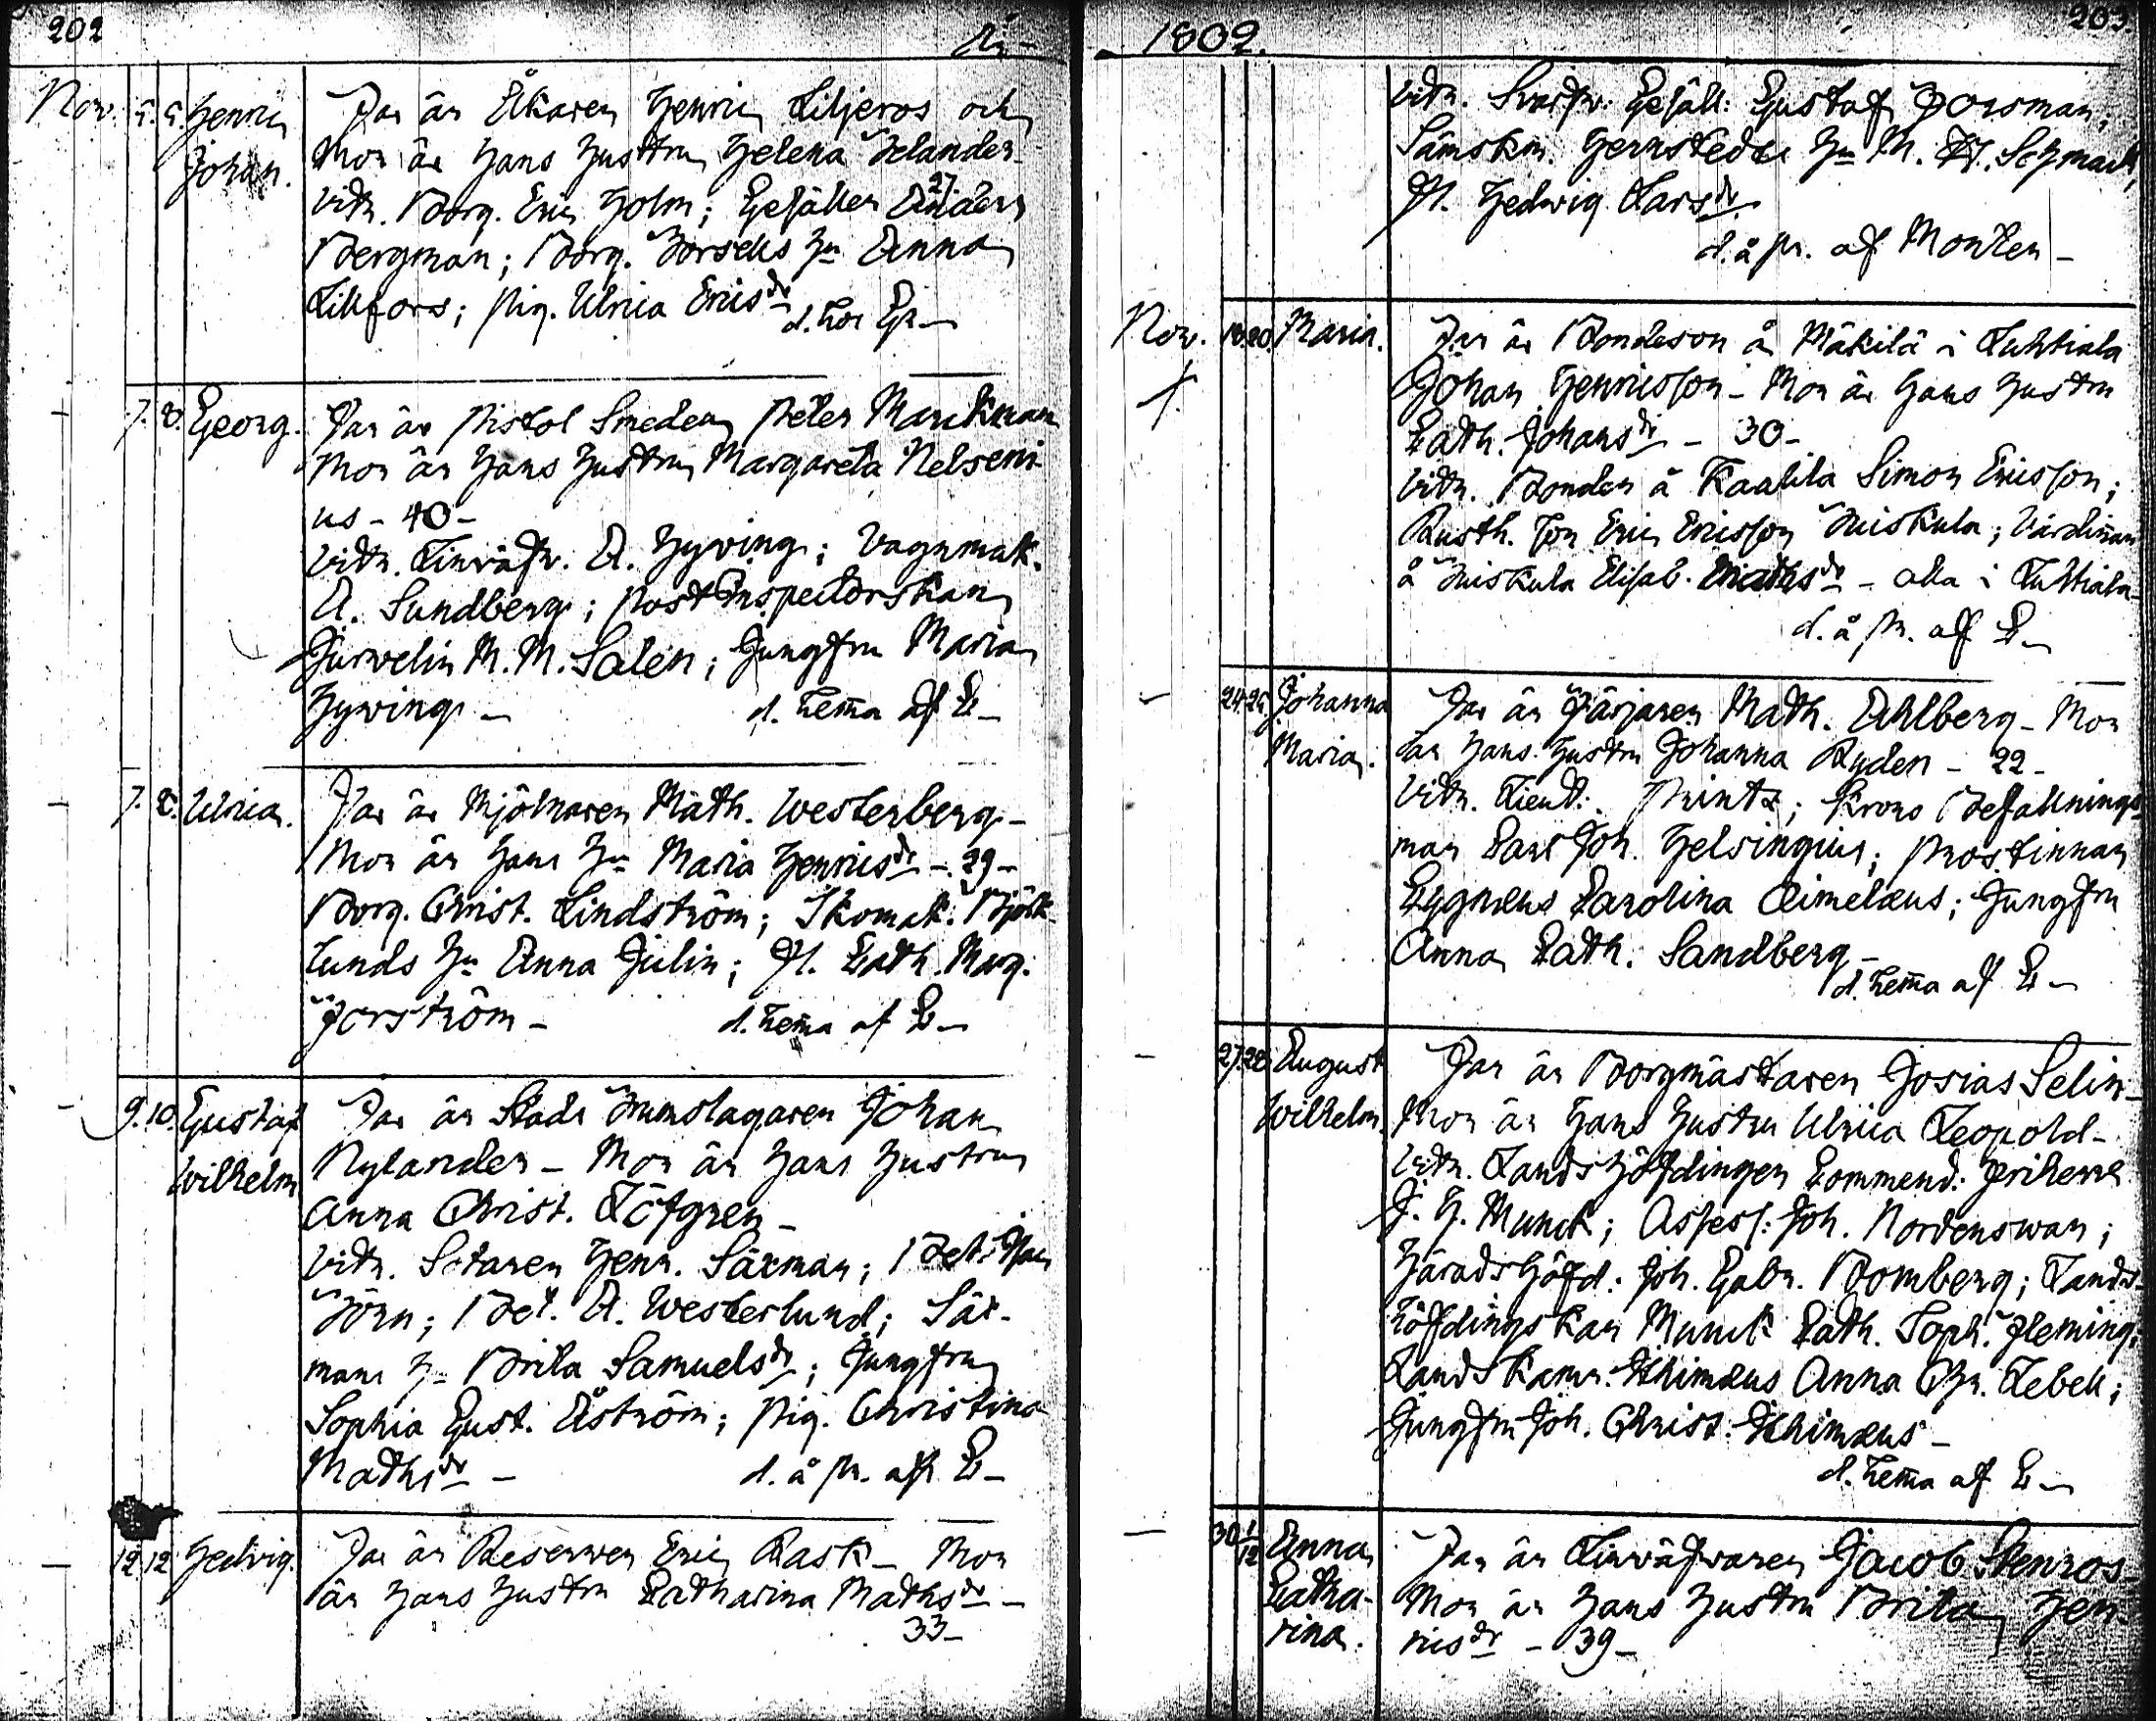 202
År
Nov. 5. 6. Henric Far är Åkaren Henric Liljeros och
Johan. Mor är Hans Hustru Helena Selander
27.
vitn. Borg. Eric Holm; Gesällen Anders
Bergman; Borg. Forsells Hu Anna
Lilfors; Pig. Ulrica Ericsdr
d. hos
7. 8. Georg. Far är Pistol Smeden Peter Marckman
Mor är Hans Hustru Margareta Nelseni
us - 40 -
vitn. Linväfv. A. Hyving; Vagnmak.
A. Sundberg; PostInspectorskan
Jurvelin M. M. Salen; Jungfru Maria
Hyving - d. hema af C -
7. 8. Ulrica. Far är Mjölnaren Math. Westerberg -
Mor är Hans Hu Maria Henricsdr - 29 -
Borg. Christ. Lindström; Skomak. Björk-
lunds Hu Anna Julin; Fl. Cath. Marg.
Forström - d. hema af C -
9. 10. Gustaf Far är Stads Trumslagaren Johan
Wilhelm Nylander - Mor är Hans Hustru
Anna Christ. Löfgren -
vitn. Sotaren Henr. Säxman; Bet.
Törn; Bet. A. Westerlund; Säx-
mans Hu Brita Samuelsdr; Jungfru
Sophia Gust. Åström; Pig. Christina
Mathsdr - d. å pr. af C -
12. 12 Hedvig. Far är Reserven Eric Rask - Mor
är Hans Hustru Catharina Mathsdr -
33 -
1802. 203.
vitn. Svarfv: Gesäll: Gustaf Forsman,
Sämskm. Hernstedts Hu M. Schmack,
Fl. Hedwig Larsdr
d. å pr. af Monten -
Nov. 18. 20. Maria. Far är Bondeson å Mäkilä i Luhtiala
Johan Henricsson - Mor är Hans Hustru
Cath. Johansdr - 30 -
vitn. Bonden å Kaalila Simon Ericsson;
Rusth. Son Eric Ericsson Miskula; Värdinnan
å Miskula Elisab. Mathsdr - alla i Luhtiala -
d. å pr. af C -
24. 25. Johanna Far är Färjaren Math. Ahlberg - Mor
Maria. är Hans Hustru Johanna Ryden - 22 -
vitn. Lieut: Printz; Krons Befallnings
man Carl Joh. Helsingius; Prostinnan
Cygnæus Carolina Aimelæus; Jungfru
Anna Cath. Sandberg -
d. hema af C -
27. 28. August Far är Borgmästaren Josias Selin -
Wilhelm. Mor är Hans Hustru Ulrica Leopold -
vitn. Landshöfdingen Commend: Friherre
J. H. Munck; Assess: Joh. Nordenswan;
Häradshöfd: Joh. Gabr. Bomberg; Lands-
höfdingskan Munck Cath. Soph. Fleming;
Landskamr. Ithimæus Anna Chr. Lebell;
Jungfru Joh. Christ. Ithimæus -
d. hema af C -
30. 1/12 Anna Far är Linväfvaren Jacob Stenros -
Catha- Mor är Hans Hustru Brita Hen-
rina. ricsdr - 39 -